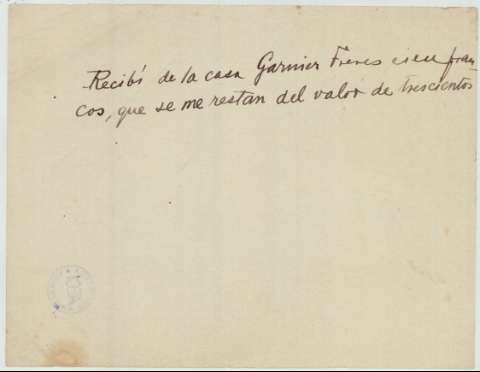 Recibí de la casa Garnier Freres cien fran
cos, que se me restan del valor de trescientos